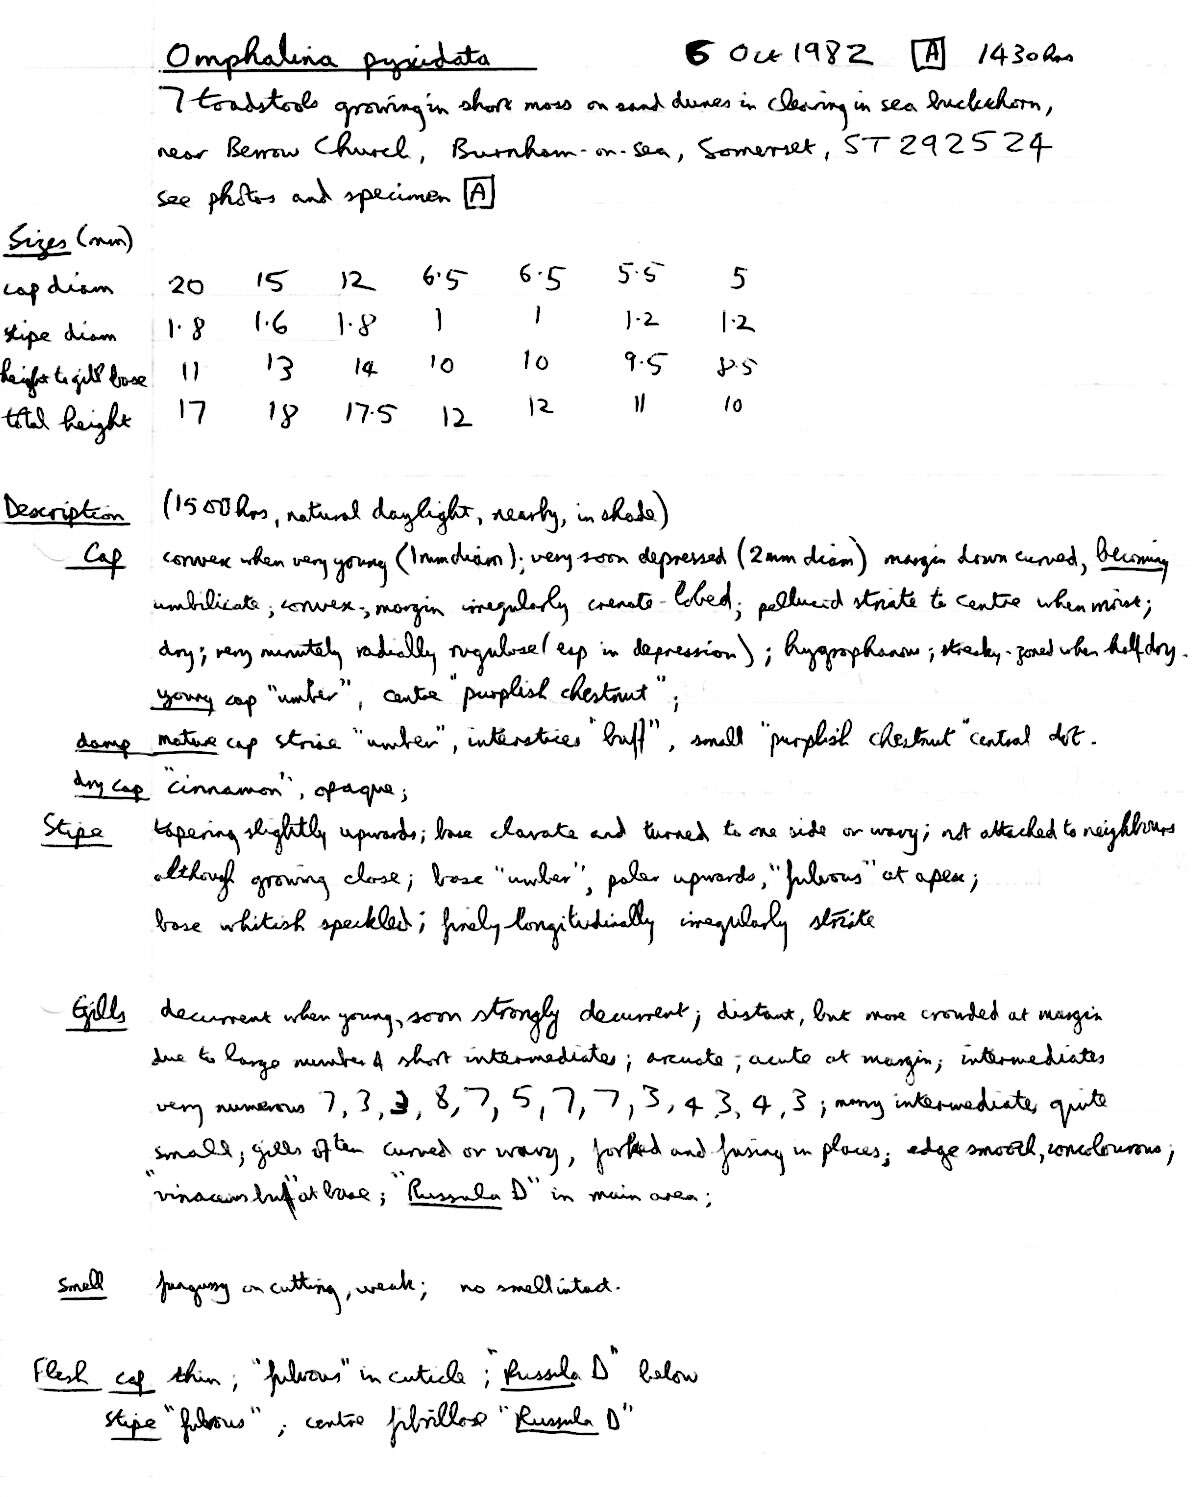 Omphalina pyxidata 6 Oct 1982 A 1430hrs
7 toadstools growing in short moss on sand dunes in clearing in sea buckthorn,
near Berrow Church, Burnham-on-sea, Somerset, ST 292524
see photos and specimen A
Sizes (mm)
cap diam 20 15 12 6.5 6.5 5.5 5
stipe diam 1.8 1.6 1.8 1 1 1.2 1.2
height to gill base 11 13 14 10 10 9.5 8.5
total height 17 18 17.5 12 12 11 10
Description (1500hrs, natural daylight, nearby, in shade)
Cap convex when very young (1mm diam); very soon depressed (2mm diam) margin down curved, becoming
umbilicate; convex; margin irregularly crenate-lobed; pellucid striate to centre when moist;
dry; very minutely radially rugulose (esp in depression); hygrophanous; streaky-zoned when half dry.
young cap "umber", centre "purplish chestnut";
damp mature cap striae "umber", interstices "buff", small "purplish chestnut" central dot.
dry cap "cinnamon", opaque;
Stipe tapering slightly upwards; base clavate and turned to one side or wavy; not attached to neighbours
although growing close; base "umber", paler upwards, "fulvous" at apex;
base whitish speckled; finely longitudinally irregularly striate
Gills decurrent when young, soon strongly decurrent; distant, but more crowded at margin
due to large number of short intermediates; arcuate; acute at margin; intermediates
very numerous 7, 3, 3, 8, 7, 5, 7, 7, 3, 4, 3, 4, 3; many intermediates quite
small; gills often curved or wavy, forked and fusing in places; edge smooth, concolourous;
"vinaceous buff" at base; "Russula D" in main area;
Smell fungusy on cutting, weak; no smell intact.
Flesh cap thin; "fulvous" in cuticle; "Russula D" below
stipe "fulvous"; centre fibrillose "Russula D"